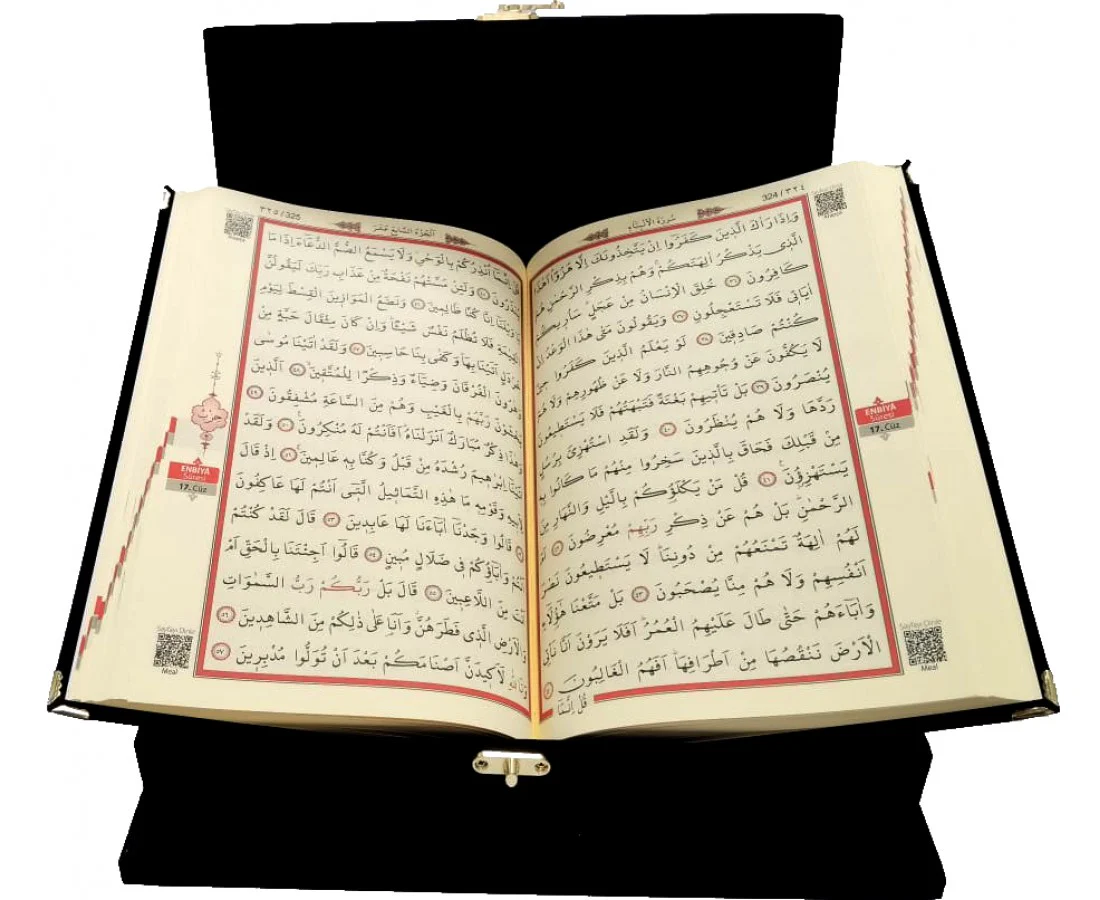 324 / ٣٢٤
سُورَةُ الْاَنْبِيَاءِ
وَاِذَا رَاٰكَ الَّذ۪ينَ كَفَرُٓوا اِنْ يَتَّخِذُونَكَ اِلَّا هُزُوًاۜ اَهٰذَا
الَّذ۪ي يَذْكُرُ اٰلِهَتَكُمْۚ وَهُمْ بِذِكْرِ الرَّحْمٰنِ هُمْ
كَافِرُونَ ﴿٣٦﴾ خُلِقَ الْاِنْسَانُ مِنْ عَجَلٍۜ سَاُر۪يكُمْ
اٰيَات۪ي فَلَا تَسْتَعْجِلُونِ ﴿٣٧﴾ وَيَقُولُونَ مَتٰى هٰذَا الْوَعْدُ اِنْ
كُنْتُمْ صَادِق۪ينَ ﴿٣٨﴾ لَوْ يَعْلَمُ الَّذ۪ينَ كَفَرُوا ح۪ينَ
لَا يَكُفُّونَ عَنْ وُجُوهِهِمُ النَّارَ وَلَا عَنْ ظُهُورِهِمْ وَلَا هُمْ
يُنْصَرُونَ ﴿٣٩﴾ بَلْ تَأْت۪يهِمْ بَغْتَةً فَتَبْهَتُهُمْ فَلَا يَسْتَط۪يعُونَ
رَدَّهَا وَلَا هُمْ يُنْظَرُونَ ﴿٤٠﴾ وَلَقَدِ اسْتُهْزِئَ بِرُسُلٍ
مِنْ قَبْلِكَ فَحَاقَ بِالَّذ۪ينَ سَخِرُوا مِنْهُمْ مَا كَانُوا بِه۪
يَسْتَهْزِؤُ۫نَ ﴿٤١﴾ قُلْ مَنْ يَكْلَؤُ۬كُمْ بِالَّيْلِ وَالنَّهَارِ مِنَ
الرَّحْمٰنِۜ بَلْ هُمْ عَنْ ذِكْرِ رَبِّهِمْ مُعْرِضُونَ ﴿٤٢﴾ اَمْ
لَهُمْ اٰلِهَةٌ تَمْنَعُهُمْ مِنْ دُونِنَاۜ لَا يَسْتَط۪يعُونَ نَصْرَ
اَنْفُسِهِمْ وَلَا هُمْ مِنَّا يُصْحَبُونَ ﴿٤٣﴾ بَلْ مَتَّعْنَا هٰٓؤُ۬لَٓاءِ
وَاٰبَٓاءَهُمْ حَتّٰى طَالَ عَلَيْهِمُ الْعُمُرُۜ اَفَلَا يَرَوْنَ اَنَّا نَأْتِي
الْاَرْضَ نَنْقُصُهَا مِنْ اَطْرَافِهَاۜ اَفَهُمُ الْغَالِبُونَ
قُلْ اِنَّمَٓا
ENBİYA
Sûresi
17. Cüz
Sayfayı Dinle
Meal
٣٢٥ / 325
اَلْجُزْءُ السَّابِعُ عَشَرَ
قُلْ اِنَّمَٓا اُنْذِرُكُمْ بِالْوَحْيِۘ وَلَا يَسْمَعُ الصُّمُّ الدُّعَٓاءَ اِذَا مَا
يُنْذَرُونَ ﴿٤٥﴾ وَلَئِنْ مَسَّتْهُمْ نَفْحَةٌ مِنْ عَذَابِ رَبِّكَ لَيَقُولُنَّ
يَا وَيْلَنَٓا اِنَّا كُنَّا ظَالِم۪ينَ ﴿٤٦﴾ وَنَضَعُ الْمَوَاز۪ينَ الْقِسْطَ لِيَوْمِ
الْقِيٰمَةِ فَلَا تُظْلَمُ نَفْسٌ شَيْـًٔاۜ وَاِنْ كَانَ مِثْقَالَ حَبَّةٍ مِنْ
خَرْدَلٍ اَتَيْنَا بِهَاۜ وَكَفٰى بِنَا حَاسِب۪ينَ ﴿٤٧﴾ وَلَقَدْ اٰتَيْنَا مُوسٰى
وَهٰرُونَ الْفُرْقَانَ وَضِيَٓاءً وَذِكْرًا لِلْمُتَّق۪ينَۙ ﴿٤٨﴾ اَلَّذ۪ينَ
يَخْشَوْنَ رَبَّهُمْ بِالْغَيْبِ وَهُمْ مِنَ السَّاعَةِ مُشْفِقُونَ ﴿٤٩﴾
وَهٰذَا ذِكْرٌ مُبَارَكٌ اَنْزَلْنَاهُۜ اَفَاَنْتُمْ لَهُ مُنْكِرُونَ۟ ﴿٥٠﴾ وَلَقَدْ
اٰتَيْنَٓا اِبْرٰه۪يمَ رُشْدَهُ مِنْ قَبْلُ وَكُنَّا بِه۪ عَالِم۪ينَۚ ﴿٥١﴾ اِذْ قَالَ
لِاَب۪يهِ وَقَوْمِه۪ مَا هٰذِهِ التَّمَاث۪يلُ الَّت۪ٓي اَنْتُمْ لَهَا عَاكِفُونَ
﴿٥٢﴾ قَالُوا وَجَدْنَٓا اٰبَٓاءَنَا لَهَا عَابِد۪ينَ ﴿٥٣﴾ قَالَ لَقَدْ كُنْتُمْ
اَنْتُمْ وَاٰبَٓاؤُ۬كُمْ ف۪ي ضَلَالٍ مُب۪ينٍ ﴿٥٤﴾ قَالُٓوا اَجِئْتَنَا بِالْحَقِّ اَمْ
اَنْتَ مِنَ اللَّاعِب۪ينَ ﴿٥٥﴾ قَالَ بَلْ رَبُّكُمْ رَبُّ السَّمٰوَاتِ
وَالْاَرْضِ الَّذ۪ي فَطَرَهُنَّۘ وَاَنَا۬ عَلٰى ذٰلِكُمْ مِنَ الشَّاهِد۪ينَ ﴿٥٦﴾
وَتَاللّٰهِ لَاَك۪يدَنَّ اَصْنَامَكُمْ بَعْدَ اَنْ تُوَلُّوا مُدْبِر۪ينَ ﴿٥٧﴾
حزب
ENBİYA
Sûresi
17. Cüz
Sayfayı Dinle
Meal